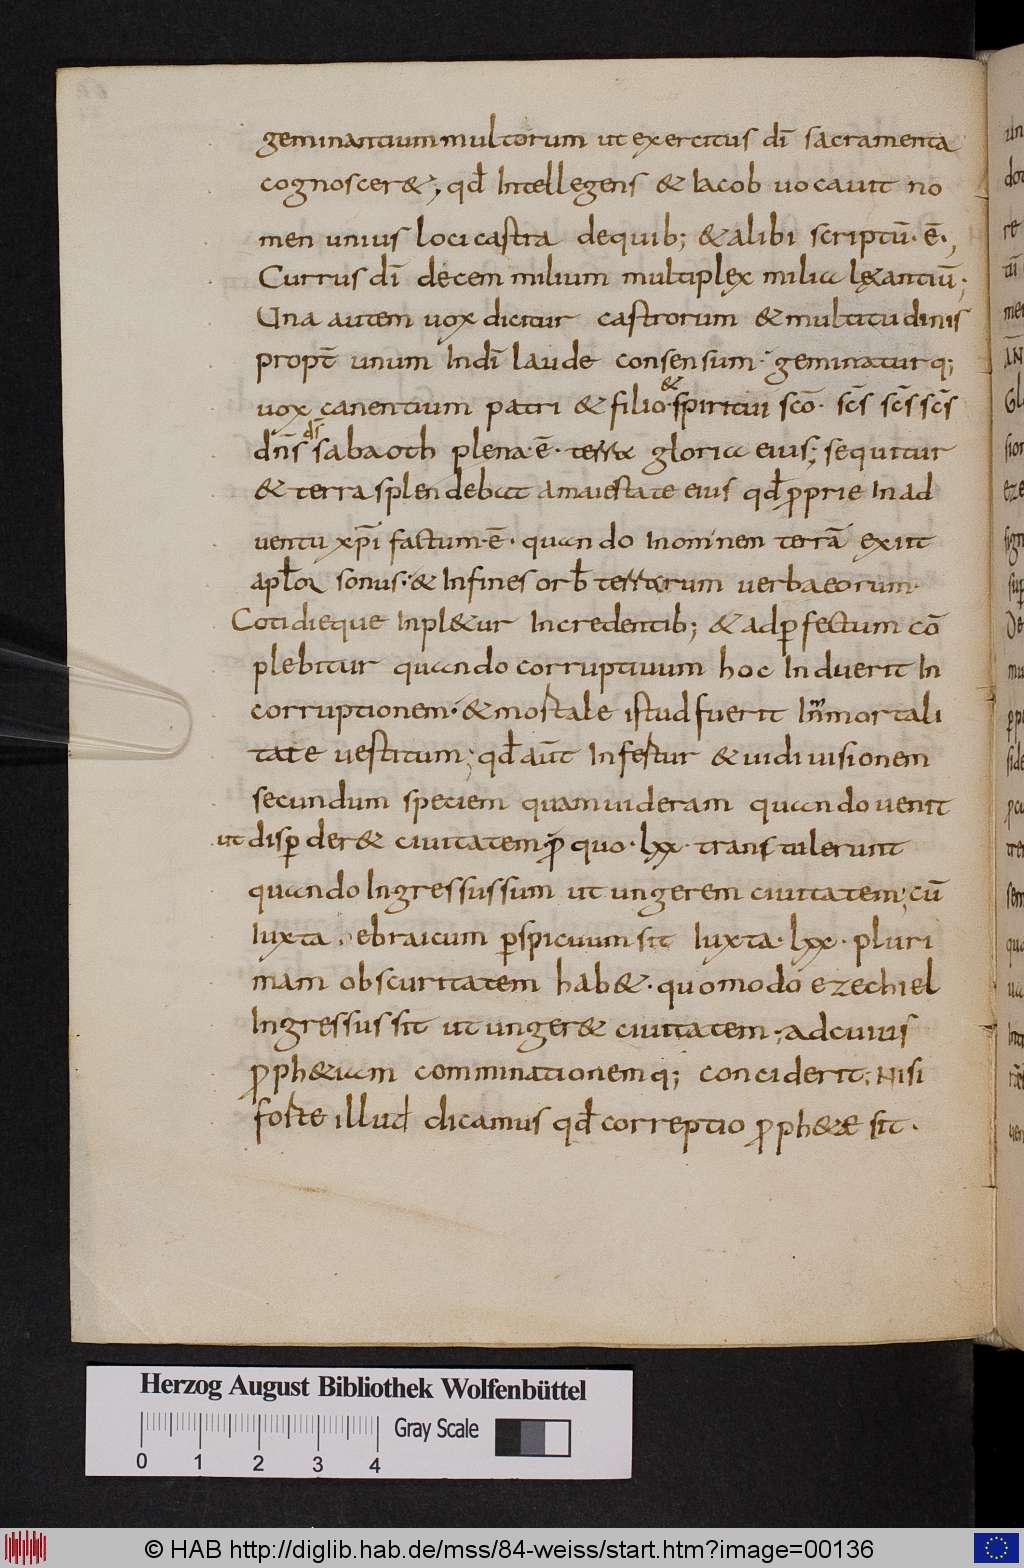 geminantium multorum ut exercitus dī sacramenta
cognoscer&, qđ Intellegens & Iacob uocauit no
men unius loci castra dequib; & alibi scriptū· ē·,
Currus dī decem milium multiplex milia lęxantiū;
Una autem uox dicitur castrorum & multitudinis
propt̄ unum Indī laude consensum· geminaturq;
uox canentium patri & filio· & spiritui scō· scs̄ scs̄ scs̄
dn̄s ds̄ sabaoth plena· ē· terra gloria eius; sequitur
& terra splendebat amaiestate eius qđ ꝓprie Inad
uentu xp̄i factum· ē· quando Inomnem terrā exiit
apl̄oꝝ sonus· & Infines orb̄ terrarum uerba eorum·
Cotidieque Inpl&ur Incredentib; & adꝑfectum cō
plebitur quando corruptiuum hoc Induerit In
corruptionem· & mortale istud fuerit Inmortali
tate uestitum; qđ aūt Infertur & uidi uisionem
secundum speciem quam uideram quando uenit
ut disꝑder& ciuitatem ꝓ quo· lxx· transtulerunt
quando Ingressus sum ut ungerem ciuitatem; cū
Iuxta ebraicum ꝑspicuum sit Iuxta· lxx· pluri
mam obscuritatem hab&· quomodo ezechiel
Ingressus sit ut unger& ciuitatem; adcuius
ꝓph&iam comminationemq; conciderit; Nisi
forte illud dicamus qđ correptio ꝓph&æ sit·
Herzog August Bibliothek Wolfenbüttel
Gray Scale
0 1 2 3 4
© HAB http://diglib.hab.de/mss/84-weiss/start.htm?image=00136